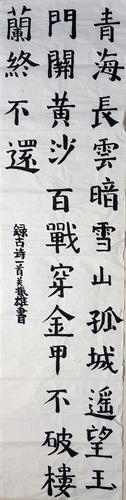 青海長雲暗雪山孤城遥望玉
門關黄沙百戰穿金甲不破樓
蘭終不還
錄古詩一首关振雄書